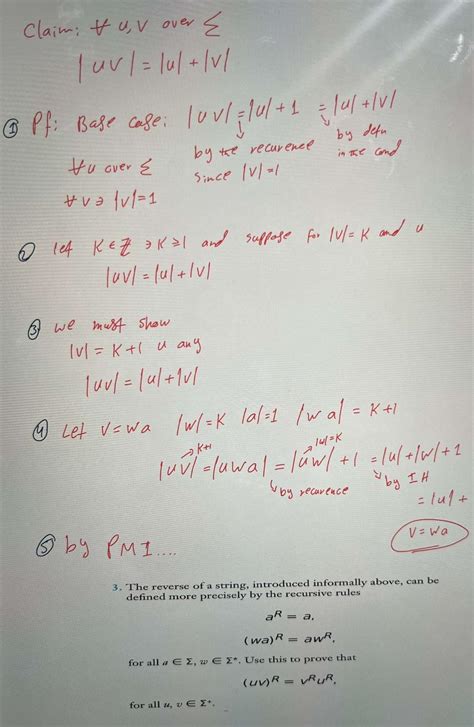 Claim: ∀ u,v over Σ
|uv| = |u| + |v|
① Pf: Base case: |uv| = |u| + 1 = |u| + |v|
by the recurence by defn
∀ u over Σ since |v| = 1 in the cond
∀ v ∋ |v| = 1
② let K ∈ Z ∋ K ≥ 1 and suppose for |v| = K and u
|uv| = |u| + |v|
③ we must show
|v| = K+1 u any
|uv| = |u| + |v|
④ Let V = wa |w| = K |a| = 1 |wa| = K+1
→ K+1 → |w| = K
|uv| = |uwa| = |uw| + 1 = |u| + |w| + 1
by recurence by IH
= |u| +
V = wa
⑤ by PMI....
3. The reverse of a string, introduced informally above, can be
defined more precisely by the recursive rules
aᴿ = a,
(wa)ᴿ = awᴿ,
for all a ∈ Σ, w ∈ Σ*. Use this to prove that
(uv)ᴿ = vᴿuᴿ,
for all u, v ∈ Σ*.